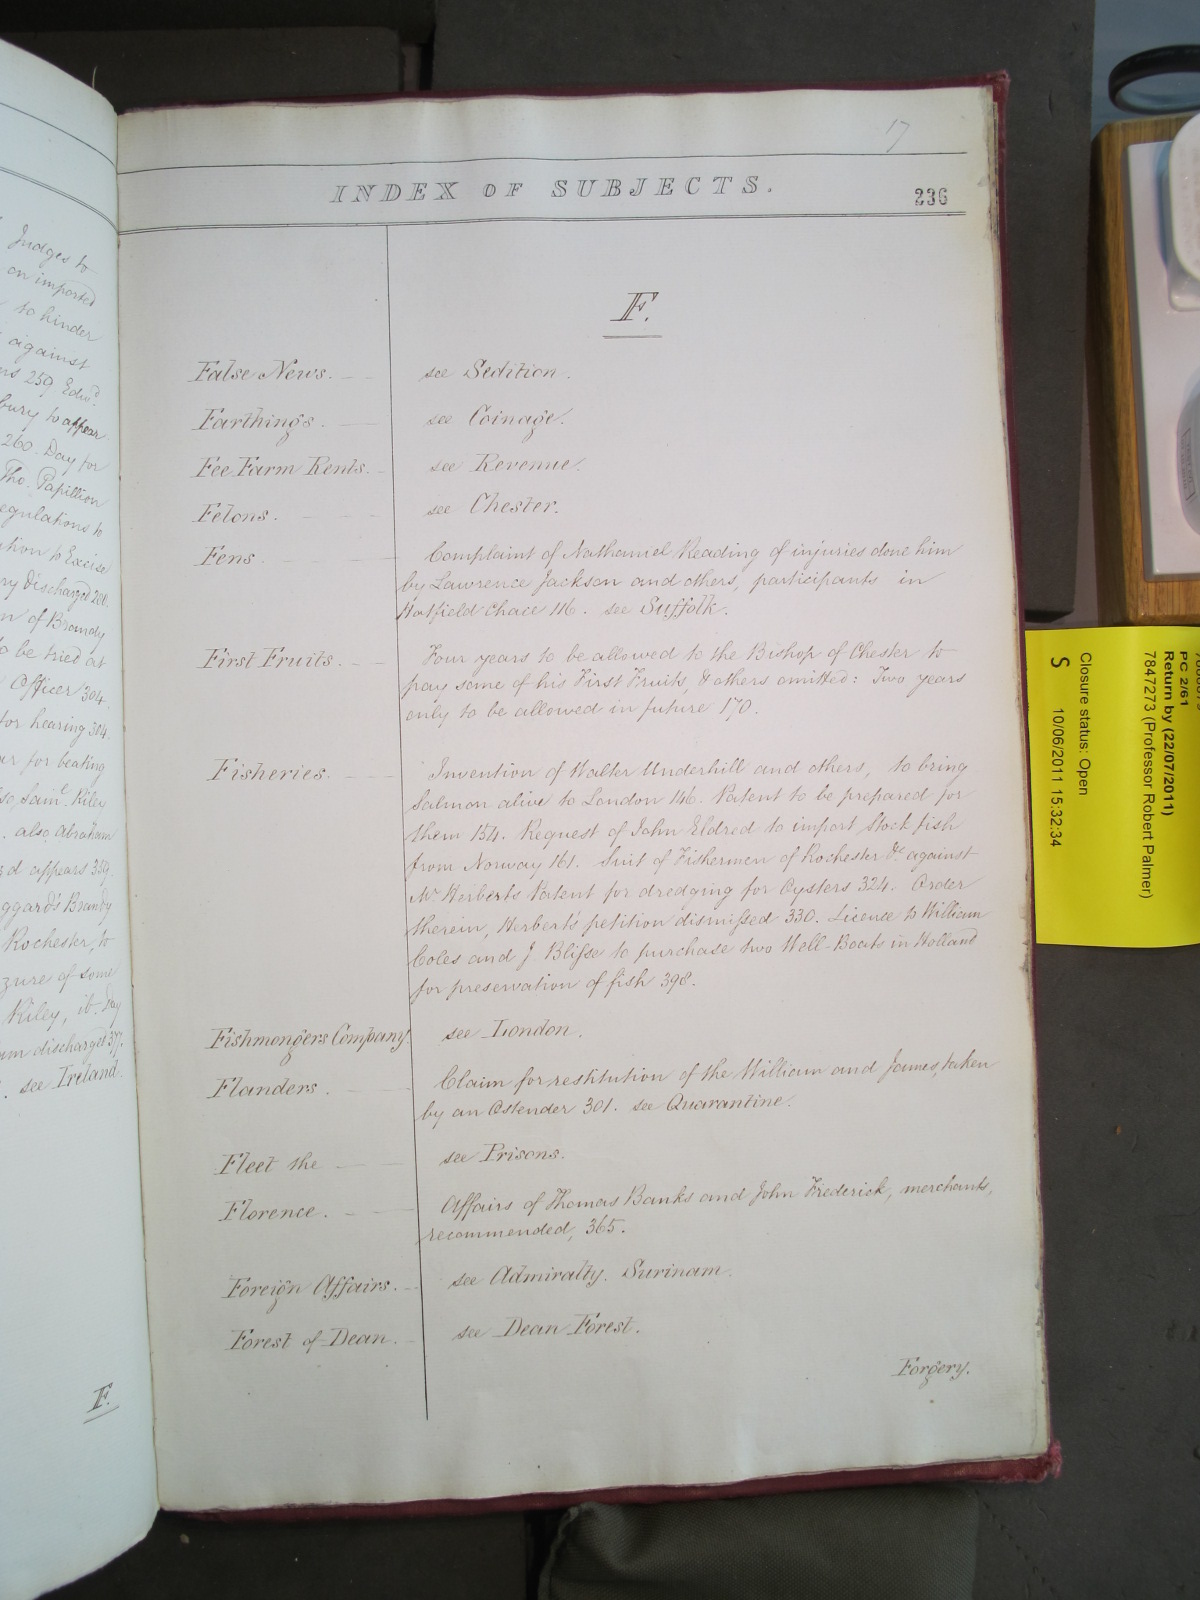 Judges to
on imported
to hinder
against
259 Edwd.
bury to appear
260. Day for
Tho. Papillion
egulations to
tion to Excise
ry discharged 280.
n of Brandy
o be tried at
Officer 304.
for hearing 304.
for beating
so, Saml. Riley
. also Abraham
d appears 359.
ggard's Brandy
Rochester, to
zure of some
Riley, ib. Day
discharged 377.
. see Ireland.
F.
17
INDEX OF SUBJECTS.
236
F.
False News. see Sedition.
Farthings. see Coinage.
Fee Farm Rents. see Revenue.
Felons. see Chester.
Fens Complaint of Nathaniel Reading of injuries done him
by Lawrence Jackson and others, participants in
Hatfield Chace 116. see Suffolk.
First Fruits. Four years to be allowed to the Bishop of Chester to
pay some of his First Fruits, & others omitted: Two years
only to be allowed in future 170.
Fisheries. Invention of Walter Underhill and others, to bring
Salmon alive to London 146. Patent to be prepared for
them 154. Request of John Eldred to import Stock fish
from Norway 161. Suit of Fishermen of Rochester &c. against
Mr. Herberts Patent for dredging for Oysters 324. Order
therein, Herbert's petition dismissed 330. Licence to William
Coles and J. Blisse to purchase two Well-Boats in Holland
for preservation of fish 398.
Fishmongers Company. see London.
Flanders. Claim for restitution of the William and James, taken
by an Ostender 301. see Quarantine.
Fleet the see Prisons.
Florence. Affairs of Thomas Banks and John Frederick, merchants,
recommended, 365.
Foreign Affairs. see Admiralty. Surinam.
Forest of Dean. see Dean Forest.
Forgery.
PC 2/61
Return by (22/07/2011)
7847273 (Professor Robert Palmer)
Closure status: Open
S 10/06/2011 15:32:34